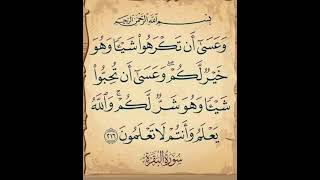 بِسْمِ اللَّهِ الرَّحْمَٰنِ الرَّحِيمِ
وَعَسَىٰٓ أَن تَكْرَهُوا۟ شَيْـًٔا وَهُوَ
خَيْرٌ لَّكُمْ ۖ وَعَسَىٰٓ أَن تُحِبُّوا۟
شَيْـًٔا وَهُوَ شَرٌّ لَّكُمْ ۗ وَٱللَّهُ
يَعْلَمُ وَأَنتُمْ لَا تَعْلَمُونَ ﴿٢١٦﴾
سُورَةُ الْبَقَرَةِ